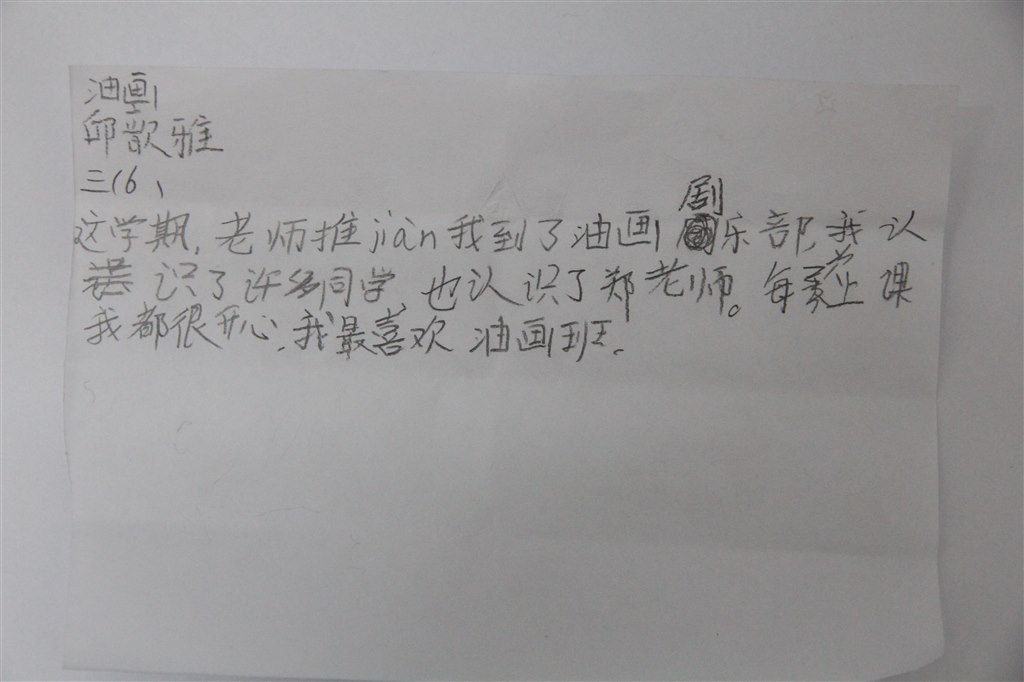 油画
邱歆雅
三(6)
这学期,老师推jiàn我到了油画剧乐部,我认
识了许多同学,也认识了郑老师。每次上课
我都很开心,我最喜欢油画班。